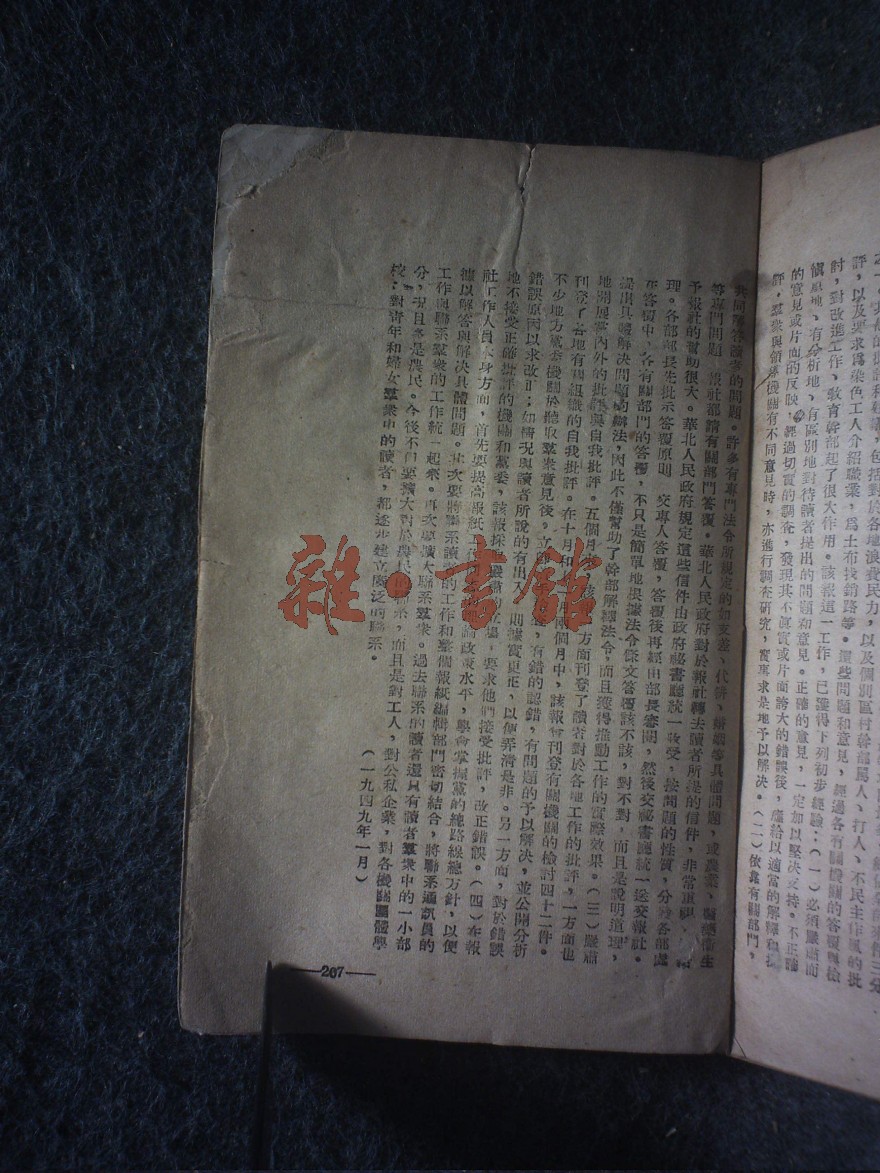 評，以及要求為染色工人介紹職業，為土布找銷路等。這些問題和意見，經過各有關機關的答覆與檢
討，對改進工作，教育幹部起了很大作用。該報這一工作，已獲得下列初步經驗：（一）必須嚴肅而
慎重地、有分析地、有區別地對待讀者提出的問題和意見。正確的意見，一定加以堅決支持。不正確
的意見或片面的反映，經過切實的調查，發現其不真實或片面誇大的錯誤後，應給以適當的解釋和
評，羣衆與領導機關有不同意見時，亦進行調查研究，實事求是地予以解決。（二）依靠有關部門，
共同解答讀者的問題。許多有專門法令所規定的如支差、代耕、婚姻等具體問題，或農業、醫藥衛生
等專門問題，報社都請有關部門答覆。華北人民政府對於報社轉去讀者所提的信件，非常重視，
予報社的幫助很大。華北人民政府規定這些信件由政府祕書廳統一收受，按問題的性質，分發各部處
理。各部部長先批示答覆原則，交專人答覆，答覆後再經由部長審閱，然後交祕書廳統一送交報社。
在答覆中，各有關部門的答覆，不只是簡單地根據法令條文答覆該不該，對不對，而且是說明道理，
提出具體解決問題的辦法，因此不僅幫助了幹部解釋法令，而且獲得推動工作的實際效果。（三）嚴肅
地開展黨內外的批評與自我批評。五個月來，該報一方面刊登了讀者對於各地工作的批評，一方面也
刊登了各地有關組織的自我批評。在十月和 月兩個月中，該報曾刊登有關機關的檢討四十二件。
不少地方黨委機關於聽取羣衆意見後，立 ，有錯的認錯，有問題的予以解決，並公開分析
錯誤原因以求改正；如情况與讀者所說的有出入，則據實更正，以便弄清是非。另一方面，對於錯誤
地不接受正確批評的機關和黨委，該報採取嚴肅的立場，要求他們接受批評，改正錯誤。（四）在報
社工作人員本身方面，首先要提高報紙工作 論政策水平，學會掌握黨的總路線總方針，以便
據以解答與解決具體問題。其次要將聯系讀者的工作和整個報紙編輯部門密切結合，將聯系通訊員的
工作與聯系羣衆的工作統一起來。再次要擴大聯系羣衆。過去聯系的讀者還只有讀者羣衆中的一小部
分，况且多是農民。今後不但要擴大對於農民的聯系，而且是對工人，對公私企業，對各機關團體學
校；對青年和婦女羣衆中的讀者，都逐步建立廣泛的聯系。
（一九四九年一月）
—267—
雜·書館